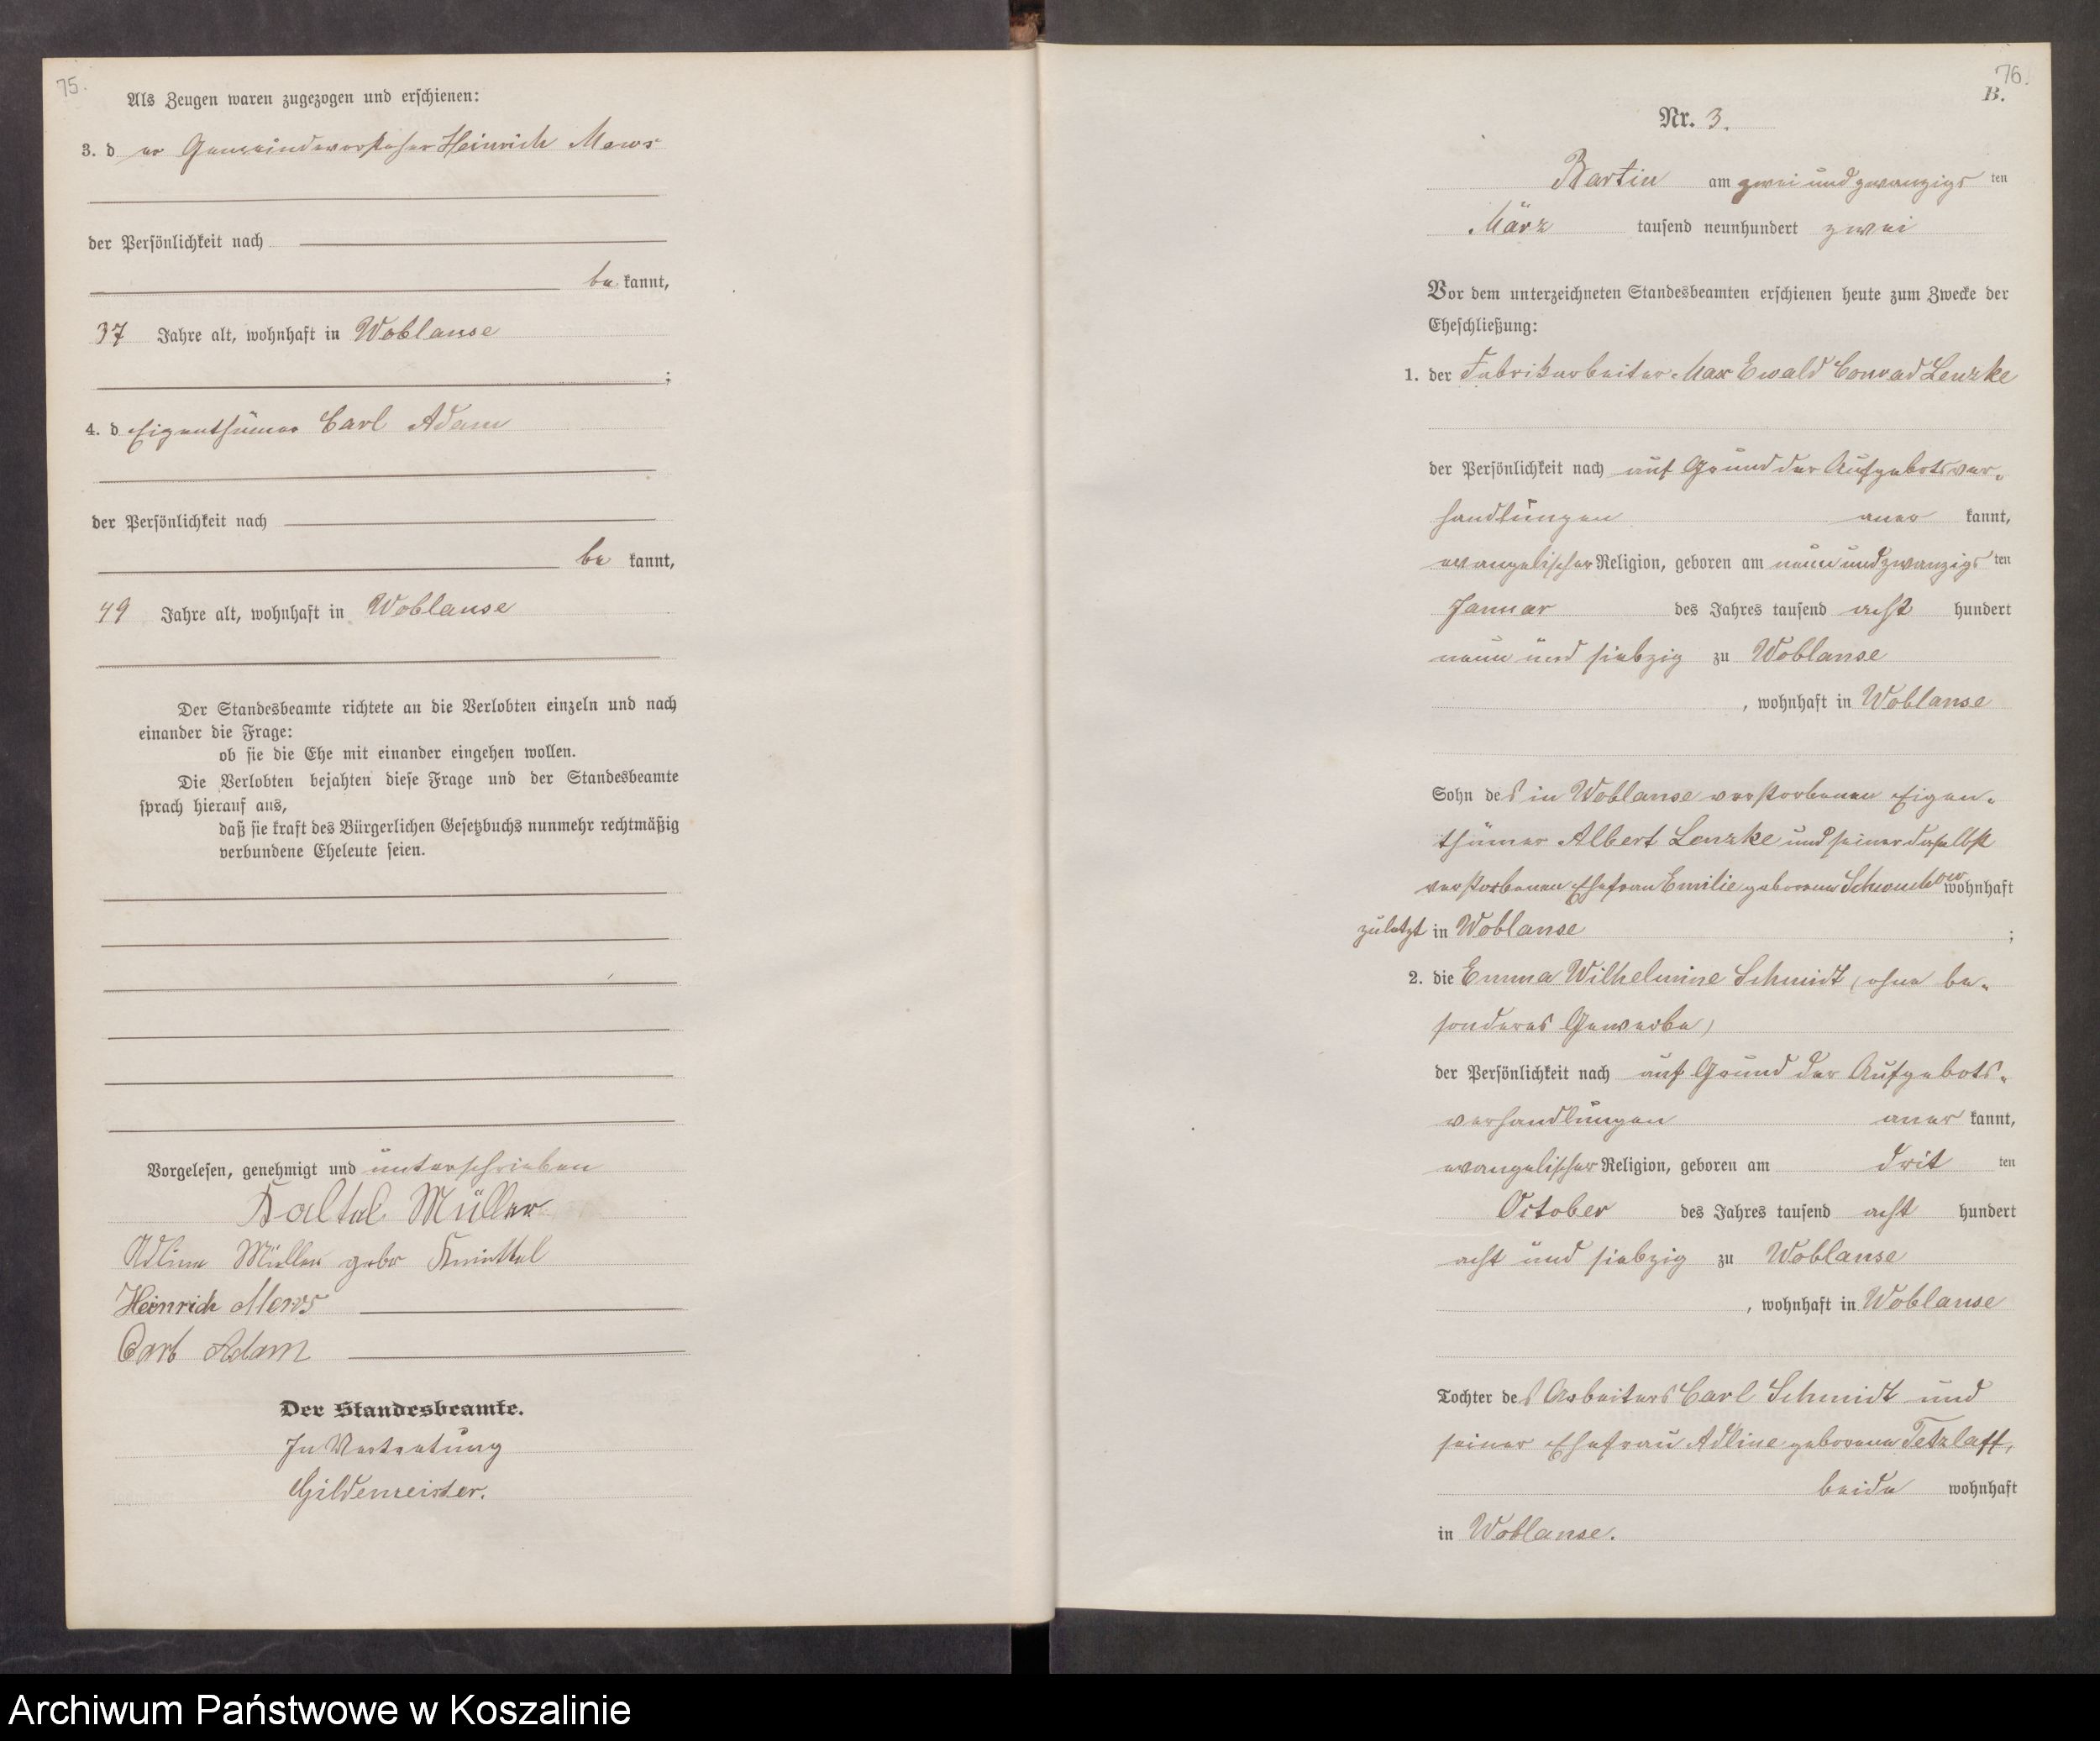 75.
Als Zeugen waren zugezogen und erschienen:
3. d er Gemeindevorsteher Heinrich Mews
der Persönlichkeit nach
be kannt,
37 Jahre alt, wohnhaft in Woblanse
;
4. d Eigenthümer Carl Adam
der Persönlichkeit nach
be kannt,
49 Jahre alt, wohnhaft in Woblanse
Der Standesbeamte richtete an die Verlobten einzeln und nach
einander die Frage:
ob sie die Ehe mit einander eingehen wollen.
Die Verlobten bejahten diese Frage und der Standesbeamte
sprach hierauf aus,
daß sie kraft des Bürgerlichen Gesetzbuchs nunmehr rechtmäßig
verbundene Eheleute seien.
Vorgelesen, genehmigt und unterschrieben
Müller
Müller gebr
Heinrich Mews
Carl Adam
Der Standesbeamte.
In Vertretung
Gildemeister.
76.
B.
Nr. 3.
Bartin am zwei und zwanzigs ten
März tausend neunhundert zwei
Vor dem unterzeichneten Standesbeamten erschienen heute zum Zwecke der
Eheschließung:
1. der Fabrikarbeiter Max Ewald Conrad Lenzke
der Persönlichkeit nach auf Grund der Aufgebotsver-
handlungen aner kannt,
evangelischer Religion, geboren am neun und zwanzigs ten
Januar des Jahres tausend acht hundert
neun und siebzig zu Woblanse
, wohnhaft in Woblanse
Sohn des in Woblanse verstorbenen Eigen-
thümer Albert Lenzke und seiner daselbst
verstorbenen Ehefrau Emilie geborene Schwuchow wohnhaft
zuletzt in Woblanse ;
2. die Emma Wilhelmine Schmidt, (ohne be-
sonderes Gewerbe)
der Persönlichkeit nach auf Grund der Aufgebots-
verhandlungen aner kannt,
evangelischer Religion, geboren am drit ten
October des Jahres tausend acht hundert
acht und siebzig zu Woblanse
, wohnhaft in Woblanse
Tochter des Arbeiters Carl Schmidt und
seiner Ehefrau Adline geborene Tetzlaff,
beide wohnhaft
in Woblanse.
Archiwum Państwowe w Koszalinie